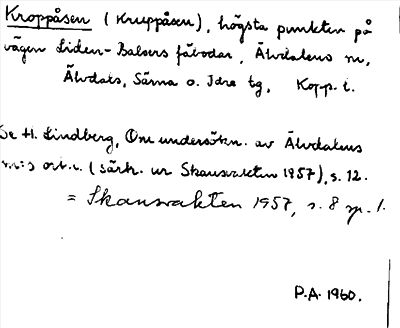 Kroppåsen (Kruppåsen), högsta punkten på
vägen Liden-Balsers fäbodar, Älvdalens sn,
Älvdals, Särna o. Idre tg, Kopp. l.
Se H. Lindberg, Om undersökn. av Älvdalens
ort.. (särtr. ur Skansvakten 1957), s. 12.
= Skansvakten 1957, s. 8 sp. 1.
P.A. 1960.